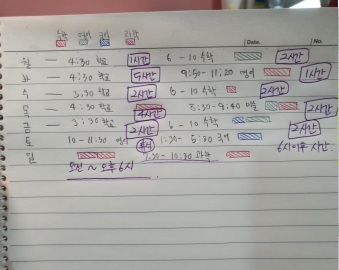 수학 영어 국어 과학
Date. No.
월 — 4:30 학교 1시간 6 - 10 수학 2시간
화 — 4:30 학교 9:50 - 11:20 영어 1시간
수 — 3:30 학교 2시간 6 - 10 수학 2시간
목 — 4:30 학교 4시간 8:30 - 9:40 2시간
금 — 3:30 학교 2시간 6 - 10 수학 2시간
토 10 - 11:30 영어 1:30 - 5:30 국어 6시이후 시간
일 10:30 과학
오전 ~ 오후 6시